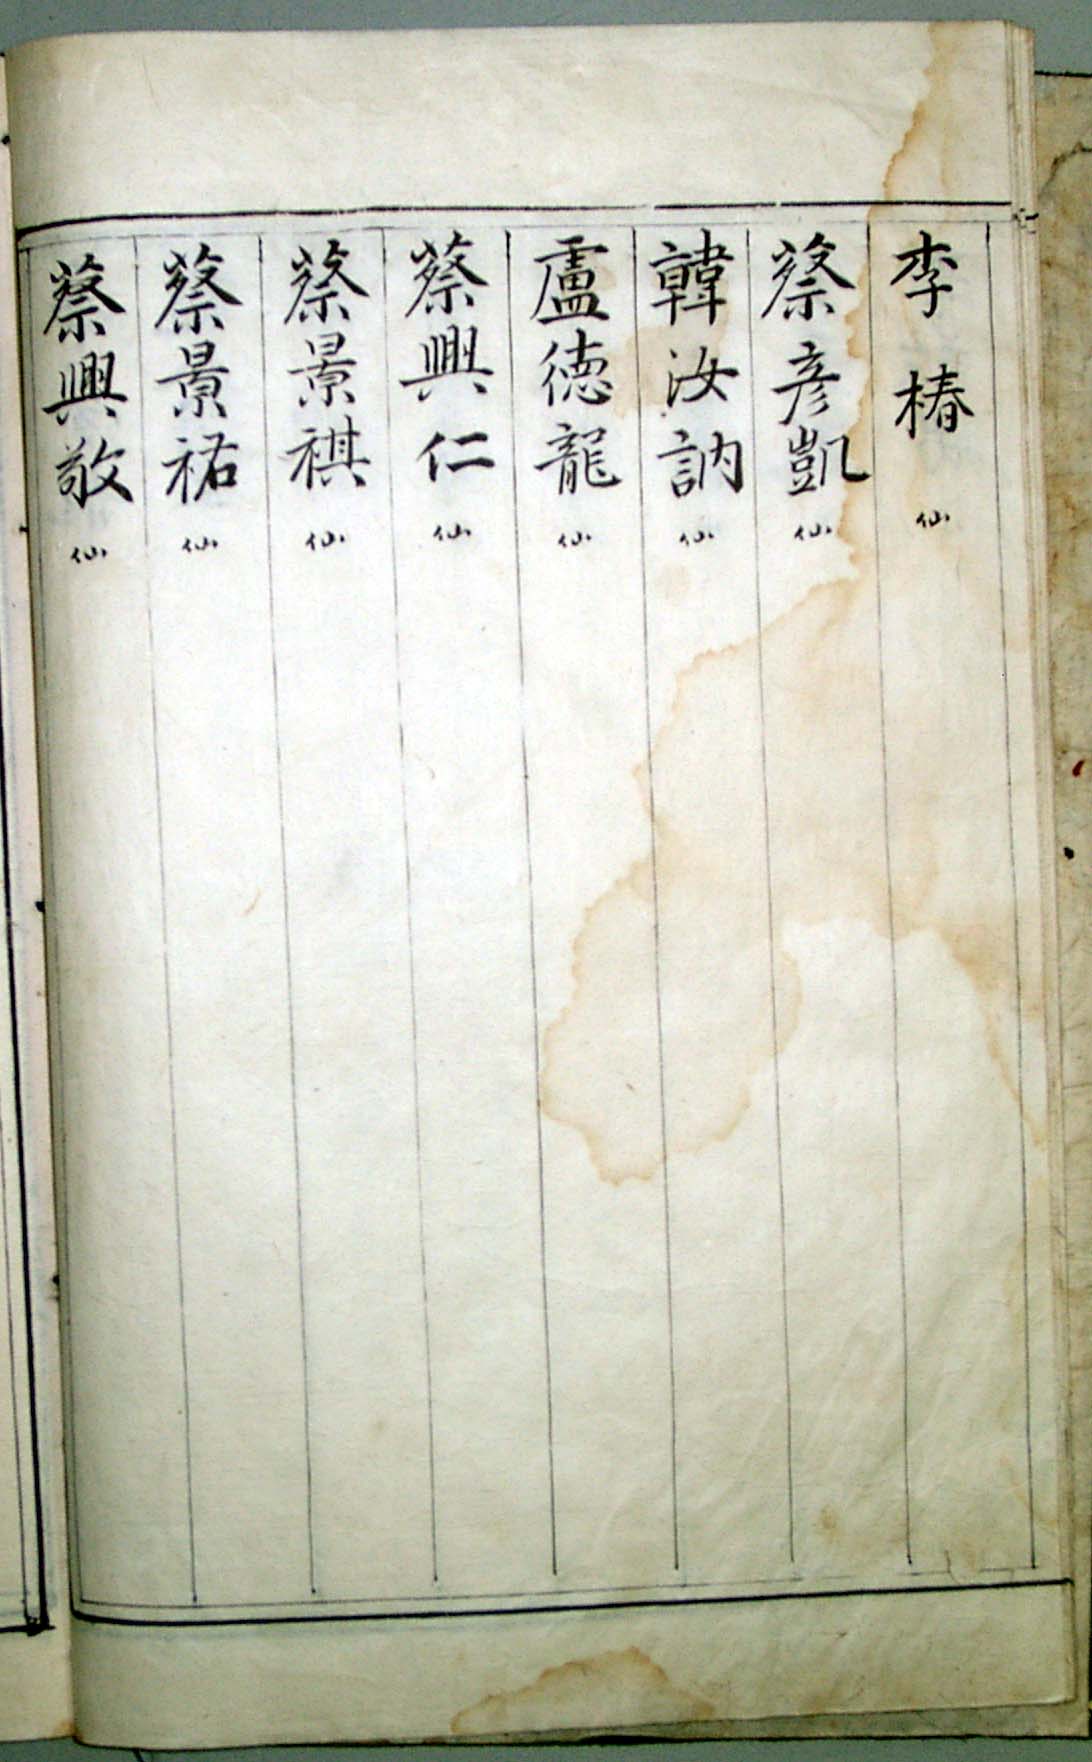 李椿 仙
蔡彥凱 仙
韓汝訥 仙
盧德龍 仙
蔡興仁 仙
蔡景祺 仙
蔡景祐 仙
蔡興敬 仙